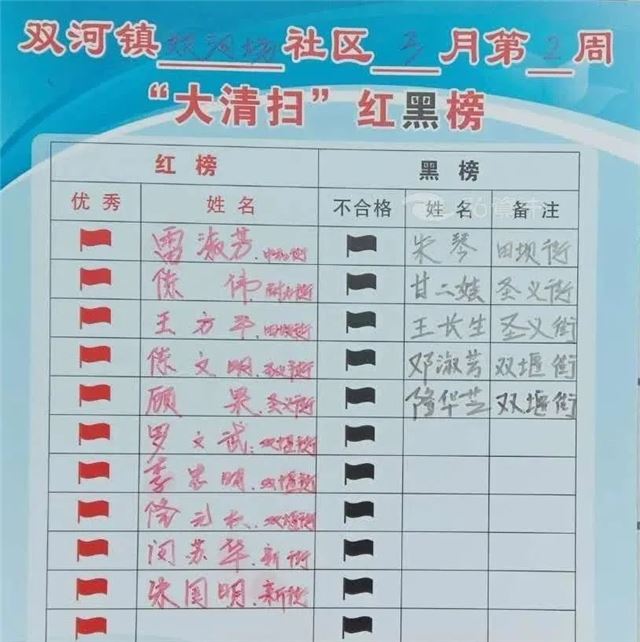 双河镇双河场社区3月第2周
“大清扫”红黑榜
红榜 黑榜
优秀 姓名 不合格 姓名 备注
雷淑芳 朱琴 田坝街
陈伟 甘二娃 圣义街
王方平.田坝街 王长生 圣义街
陈文明.圣义街 邓淑芳 双堰街
顾果.圣义街 隆华芝 双堰街
罗文武.双堰街
李思明.双堰街
隆元 双堰街
闵苏华.新街
朱国明.新街